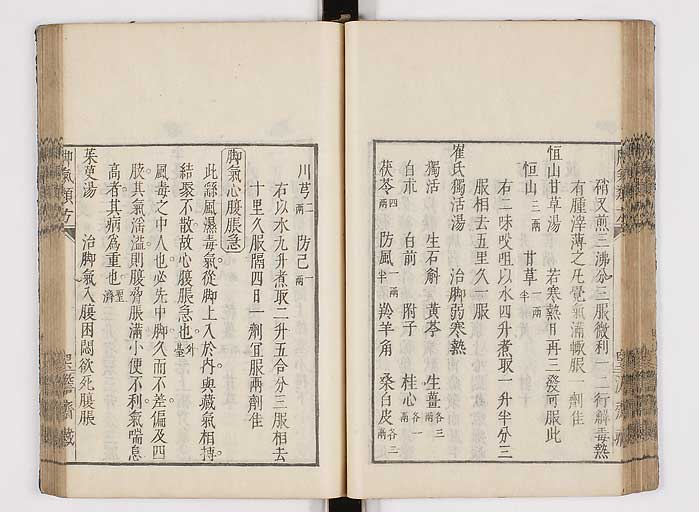 硝又煎三沸分三服微利一二行解毒熱
有腫滓薄之凡覺氣滿輙服一劑佳
恒山甘草湯 若寒熱日再三發可服此
恒山三兩 甘草一兩半
右二味㕮咀以水四升煮取一升半分三
服相去五里久一服
崔氏獨活湯 治脚弱寒熱
獨活 生石斛 黃芩 生薑各三兩
白朮 白前 附子 桂心各一兩
茯苓四兩 防風一兩半 羚羊角 桑白皮各二兩
川芎二兩 防己一兩
右以水九升煮取二升五合分三服相去
十里久服隔四日一劑宜服兩劑佳
脚氣心腹脹急
此繇風濕毒氣從脚上入於內與藏氣相搏
結聚不散故心腹脹急也外臺
風毒之中人也必先中脚久而不差偏及四
肢其氣滛溢則腹脊脹滿小便不利氣喘息
高者其病爲重也聖濟
茱萸湯 治脚氣入腹困悶欲死腹脹
脚氣類方